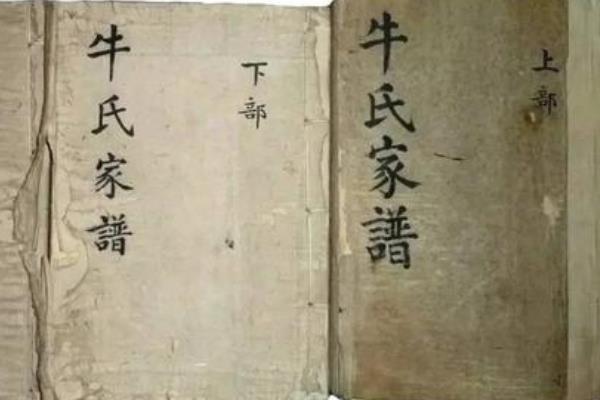 上部
牛氏家譜
下部
牛氏家譜